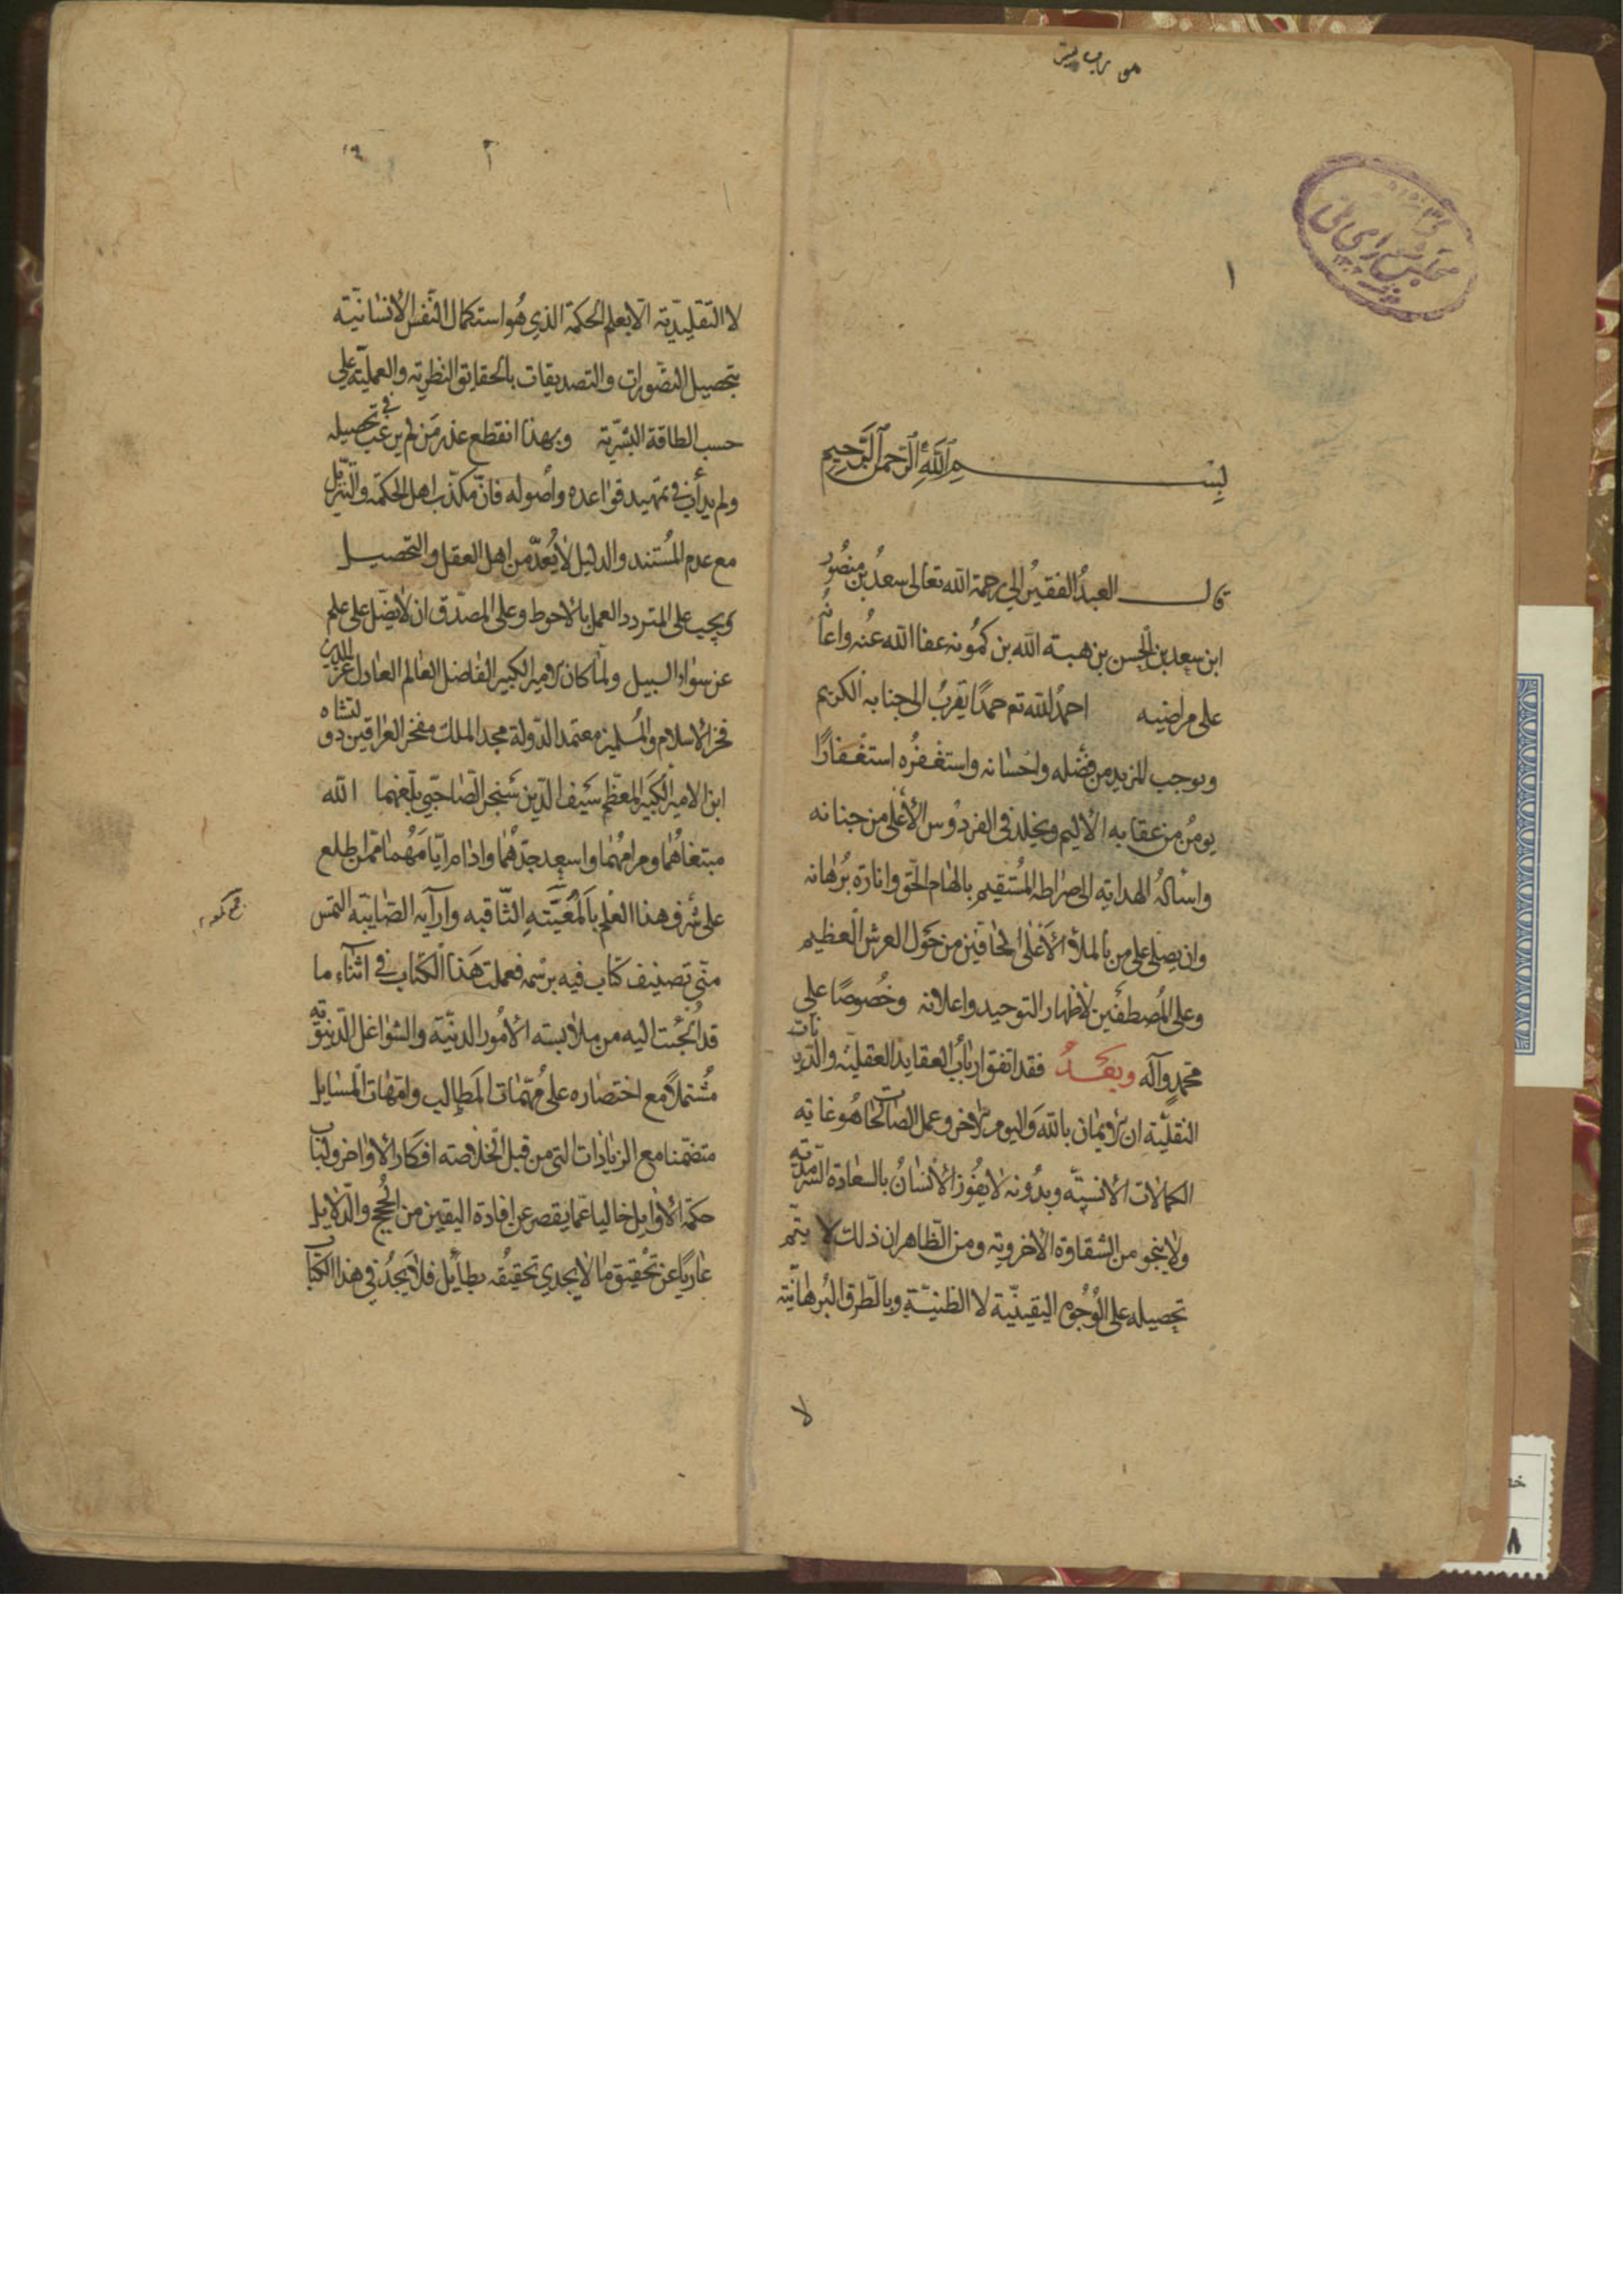 ١
بسم الله الرحمن الرحيم
قال العبد الفقير الى رحمة الله تعالى سعد بن منصور
ابن سعد بن الحسن بن هبة الله بن كمونه عفا الله عنه واعانه
على مراضيه احمد الله تع حمدًا يقرب الى جنابه الكريم
ويوجب المزيد من فضله واحسانه واستغفره استغفارًا
يومن من عقابه الاليم ويخلد في الفردوس الأعلى من جنانه
واسأله الهداية الى صراطه المستقيم بالهام الحق وانارة برهانه
وان يصلى على من بالملأ الأعلى الحافين من حول العرش العظيم
وعلى المصطفين لاظهار التوحيد واعلانه وخصوصًا على
محمد وآله وبعد فقد اتفق ارباب العقايد العقلية والديانات
النقلية ان الايمان بالله واليوم الاخر وعمل الصالحات هو غاية
الكمالات الانسيّه وبدونه لا يفوز الانسان بالسعادة السرمدية
ولا ينجو من الشقاوة الاخروية ومن الظاهر ان ذلك لا يتم
تحصيله على الوجوه اليقينيّة لا الظنيّة وبالطرق البرهانيّة
لا
٢
لا التقليديّة الا بعلم الحكمة الذي هو استكمال النفس الانسانيّة
بتحصيل التصورات والتصديقات بالحقايق النظرية والعمليّة على
حسب الطاقة البشريّة وبهذا انقطع عذر من لم يرغب في تحصيله
ولم يدأب في تمهيد قواعده وأصوله فانّ مكذب اهل الحكمة والتنزيل
مع عدم المستند والدليل لا يعدّ من اهل العقل والتحصيل
ويجب على المتردد العمل بالاحوط وعلى المصدّق ان لا يضلّ على علم
عن سواء السبيل ولما كان الامير الكبير الفاضل العالم العادل عز الدين
فخر الاسلام والمسلمين معتمد الدولة مجد الملك مفخر العراقين دولتشاه
ابن الامير الكبير المعظم سيف الدين سنجر الصاحبي بلغهما الله
مبتغاهما ومرامهما واسعد جدّهما وادام ايّامهما ممّن اطلع
على شرف هذا العلم بالمعيّته الثاقبه وآرآيه الصايبة التمس
منّي تصنيف كتاب فيه برسمه فعملت هذا الكتاب في اثناء ما
قد ألجئت اليه من ملابسة الامور الدنيّة والشواغل الدنيوية
مشتملًا مع اختصاره على مهمّات المطالب وامّهات المسايل
متضمّنا مع الزيادات التي من قبل الخلاصة افكار الاواخر ولباب
حكمة الاوايل خاليا عمّا يقصر عن افادة اليقين من الحجج والدلايل
عاريًا عن تحقيق ما لا يجدي تحقيقه بطايل فلا يجد في هذا الكتاب